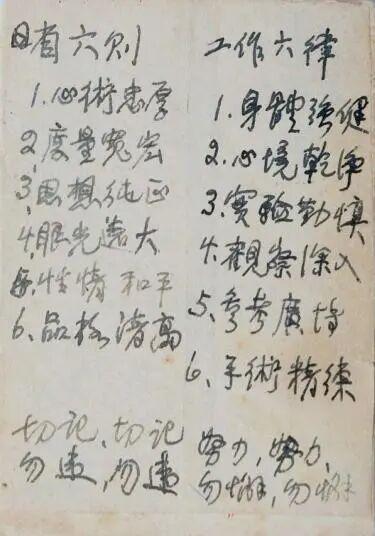 日省六则
1.心術忠厚
2.度量寬宏
3.思想純正
4.眼光遠大
5.性情和平
6.品格清高
切记、切记
勿違,勿違
工作六律
1.身體強健
2.心境乾净
3.實验勤慎
4.觀察深入
5.參考廣博
6.手術精練
努力,努力,
勿懈,勿懈